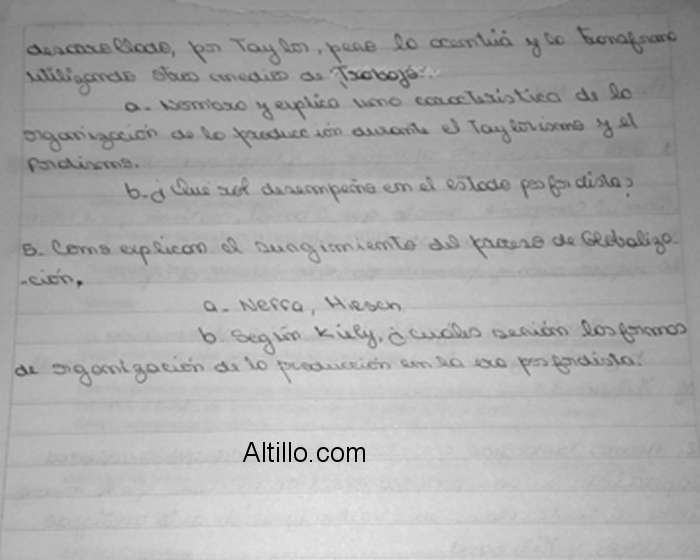 desarrollado, por Taylor, pero lo acentuá y lo transforma
utilizando otros medios de Trabajo.
a- Nombra y explica una característica de la
organización de la producción durante el Taylorismo y el
Fordismo.
b-¿Qué rol desempeña en el estado posfordista?
5. Como explican el surgimiento del proceso de Globaliza-
-ción.
a- Neffa, Hirsch
b. Según Kiely, ¿cuáles serían las formas
de organización de la producción en la era posfordista.
Altillo.com